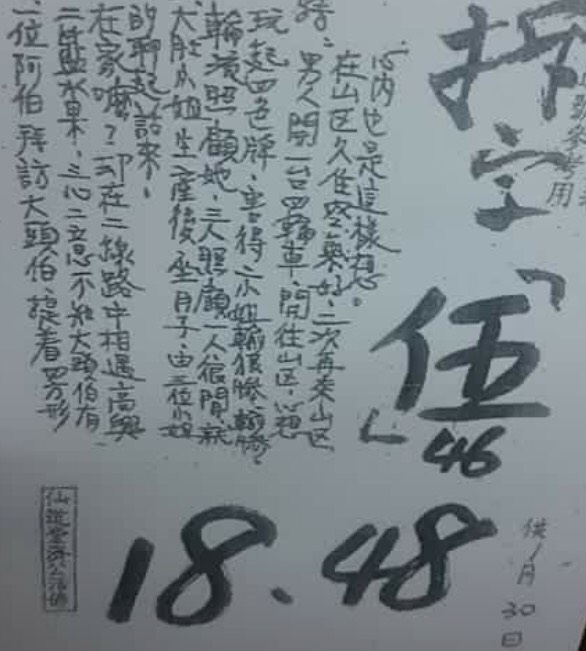 拆字
參考用
「伍」
46
一位阿伯拜訪大頭伯,提着四方形
二件藍水果,三心二意不知大頭伯有
在家嘛?却在二線路中相遇高興
的聊起話來。
大肚小姐生產後坐月子,由三位小姐
輪流照顧她,三人照顧一人很閒,就
玩起四色牌,害得二小姐輸很慘,輸慘
男人開一台四輪車,開往山区,心想
在山区久住空氣好,二次再來山区
心內也是這樣想。
18.48
供1月30日
濟公活佛